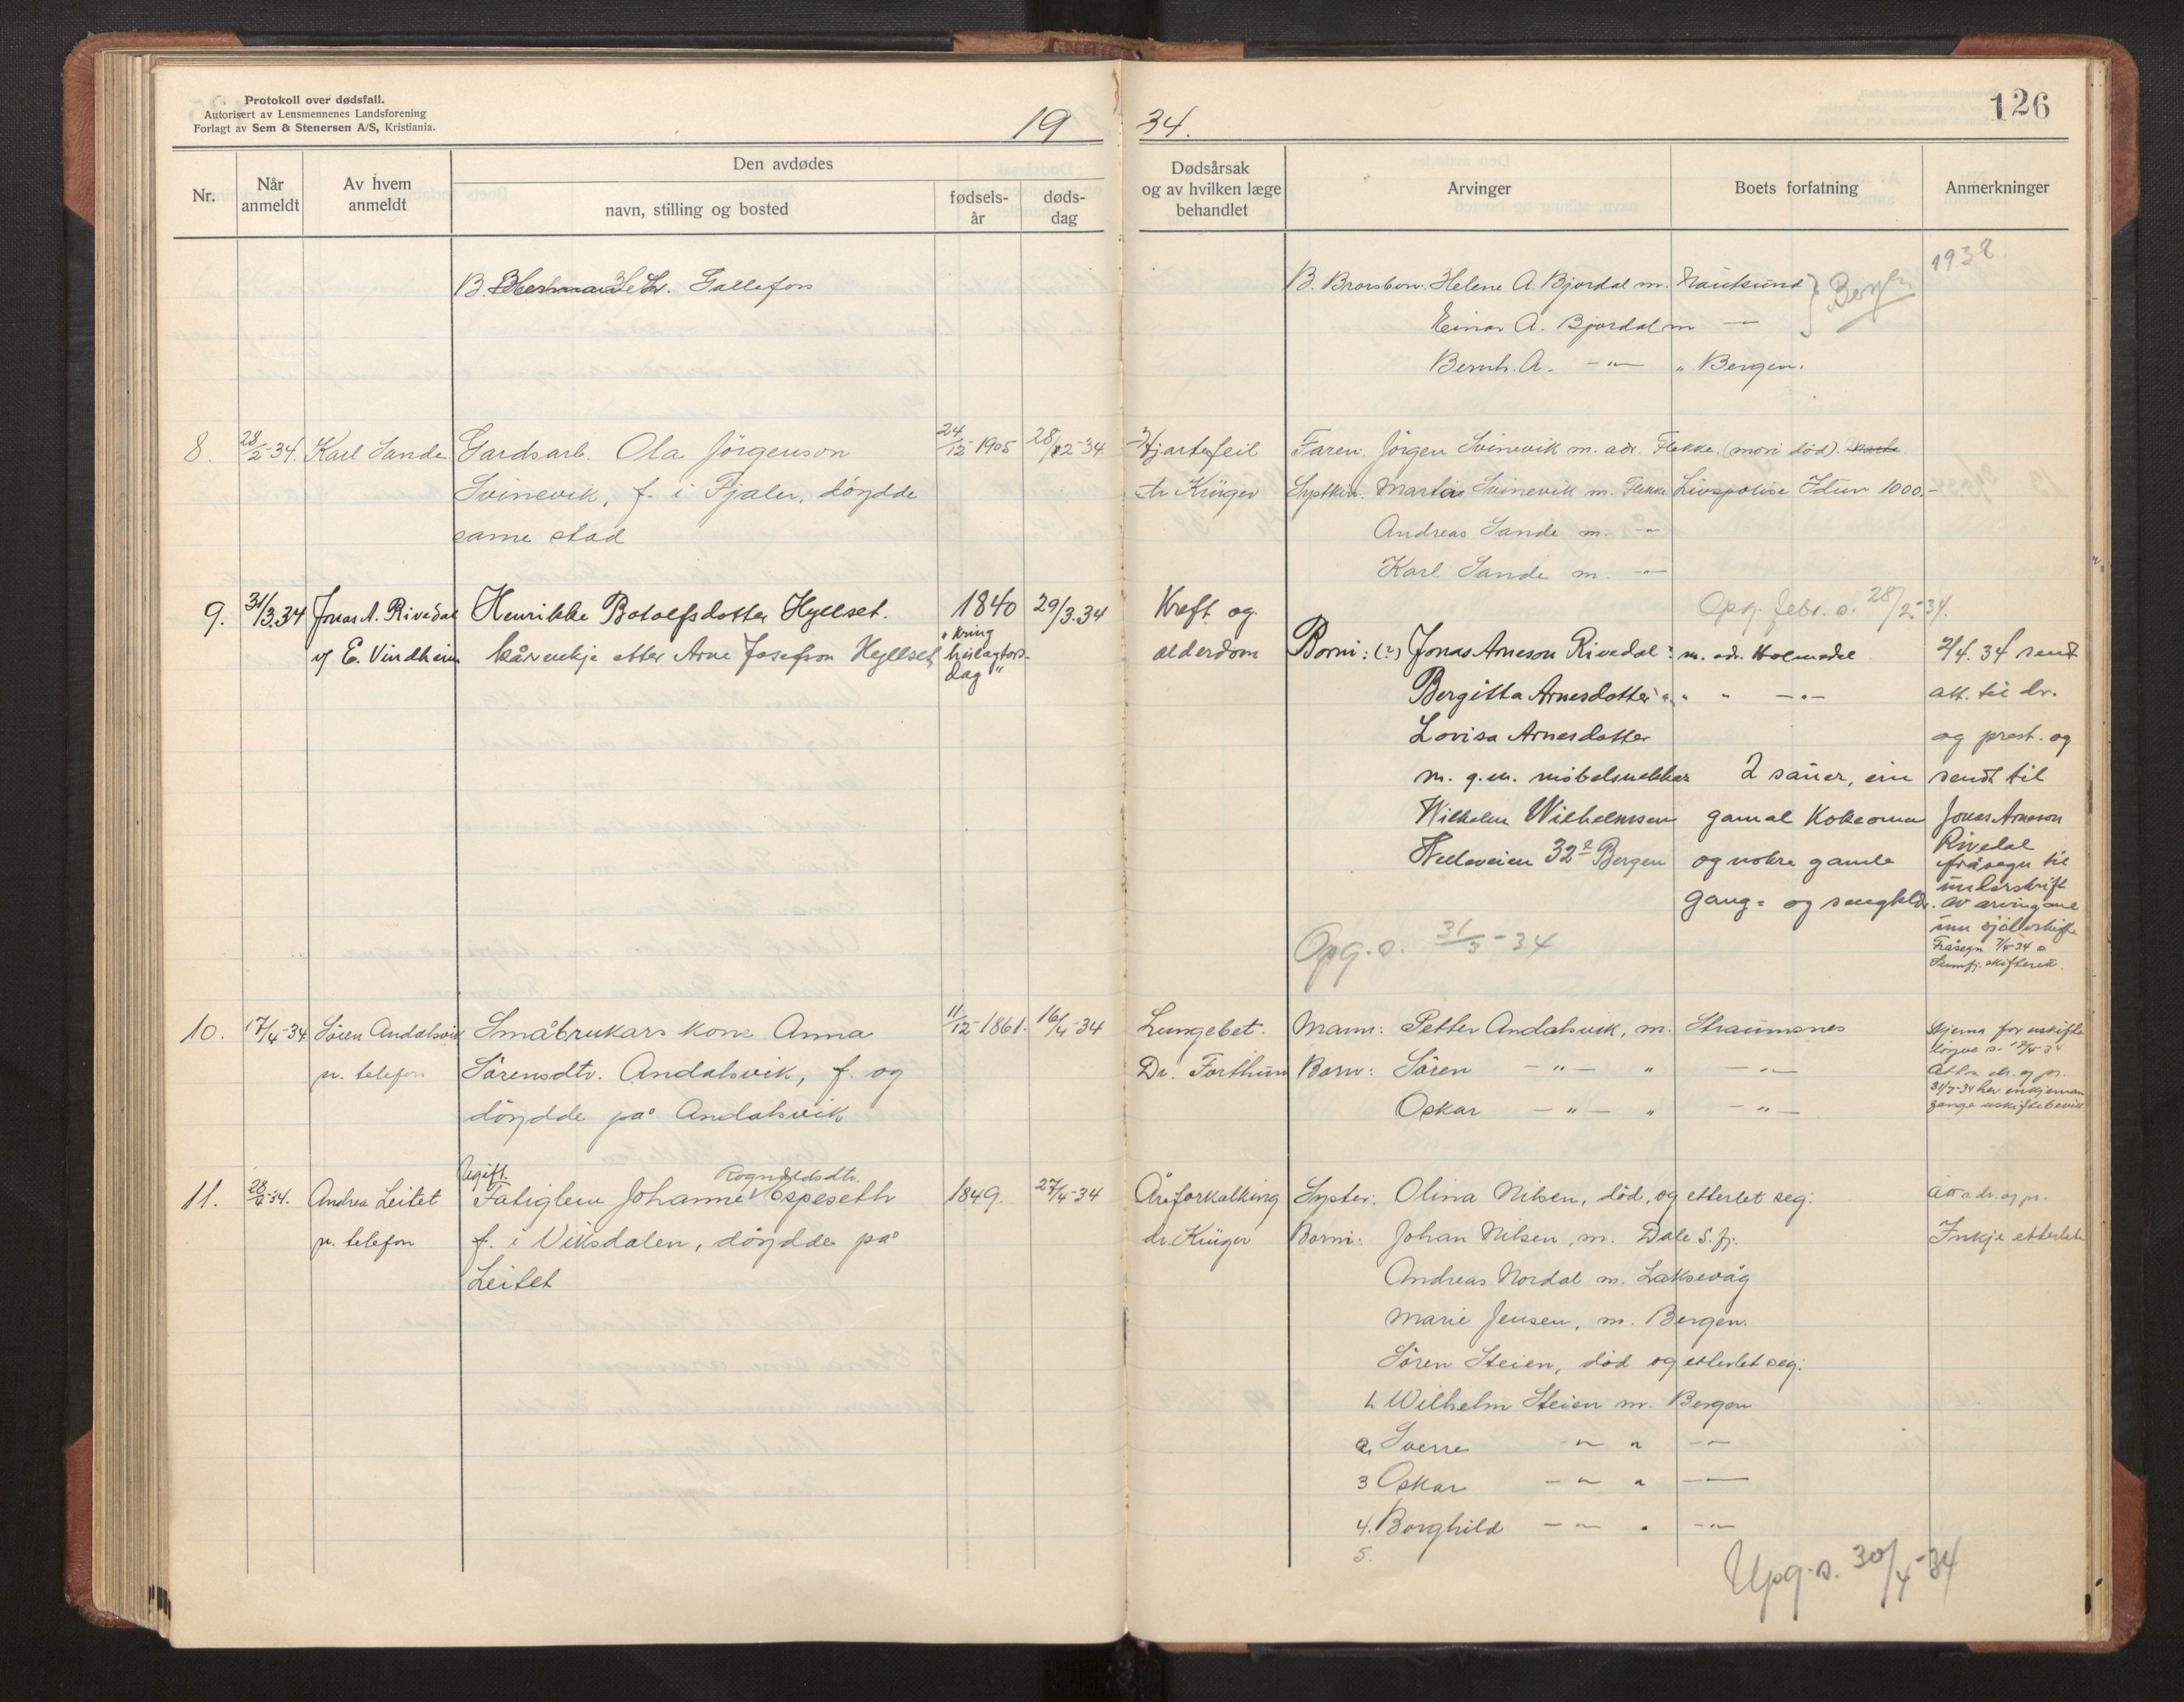 Protokoll over dødsfall.
Autorisert av Lensmennenes Landsforening
Forlagt av Sem & Stenersen A/S, Kristiania.
19 34.
126
Nr.
Når anmeldt
Av hvem anmeldt
Den avdødes
navn, stilling og bosted
fødsels-år
døds-dag
Dødsårsak og av hvilken læge behandlet
Arvinger
Boets forfatning
Anmerkninger
B. Gallefoss
B. Brorsborn. Helene A. Bjordal m. Nautsund } Bergen
1938
Einar A. Bjordal m — " —
Bernh. A. — " — " Bergen.
8. 28/2-34. Karl Sande Gardsarb. Ola Jörgenson 24/12-1905 28/2-34 Hjartefeil Faren. Jörgen Svinevik m. adr. Flekke. (mori död).
Svinevik, f. i Fjaler, döydde dr Krüger Systkin. Martin Svinevik m. Flekke Livspolise Idun 1000.-
same stad Andreas Sande m. — " —
Karl Sande m. — " —
Opg. febr. s. 28/2-34.
9. 31/3.34 Jonas A. Rivedal Henrikke Botolfsdotter Hyllset. 1840 29/3.34 Kreft og
v/ E. Vindheim kårenkje etter Arne Josefson Hyllset "kring helagtorsdag" alderdom Borni: (2) Jonas Arneson Rivedal: m. adr. Holmedal 2/4. 34 sendt
Bergitta Arnesdotter " " " — " — att. til dr.
Lovisa Arnesdotter og prest. og
m. g.m. möbelsnekkar 2 sauer, ein sendt til
Wilhelm Wilhelmsen gamal kokeomn Jonas Arneson
32 Bergen og nokre gamle Rivedal
fråsegn til
gang- og sengklede. underskrift
av arvingane
um sjölvskifte
Fråsegn 7/4-34 s
Sunnfj. skifterett.
Opg. s. 31/3-34
10. 17/4-34 Sören Andalsvik Småbrukars kone Anna 11/12-1861. 16/4-34 Lungebet. Mann: Petter Andalsvik, m. Straumsnes Skjema for uskifte
p. telefon Sörensdtr. Andalsvik, f. og Dr. Forthun Born: Sören — " — " — " — Att. s. dr. og pr.
döydde på Andalsvik Oskar — " — " — " — 31/7-34 her enkjeman
11. 28/4-34. Andrea Leitet Ugift. Fatiglem Johanne Rognvaldsdtr. Espeseth 1849. 27/4-34 Åreforkalking Syster: Olina Nilsen, död, og etterlet seg: att s dr. og pr.
p. telefon f. i Viksdalen, döydde på dr. Krüger Borni: Johan Nilsen, m. Dale S.fj. Inkje etterlete
Leitet Andreas Nordal m. Laksevåg
Marie Jensen, m. Bergen.
Sören Steien, död og etterlet seg:
1. Wilhelm Steien m. Bergen
2. Sverre — " — " — " —
3 Oskar — " — " — " —
4. Borghild — " — " — " —
5.
Upg. s. 30/4-34